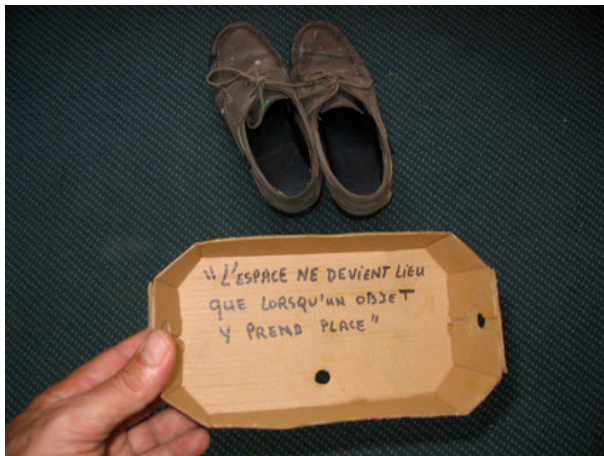 "L'ESPACE NE DEVIENT LIEU
QUE LORSQU'UN OBJET
Y PREND PLACE"